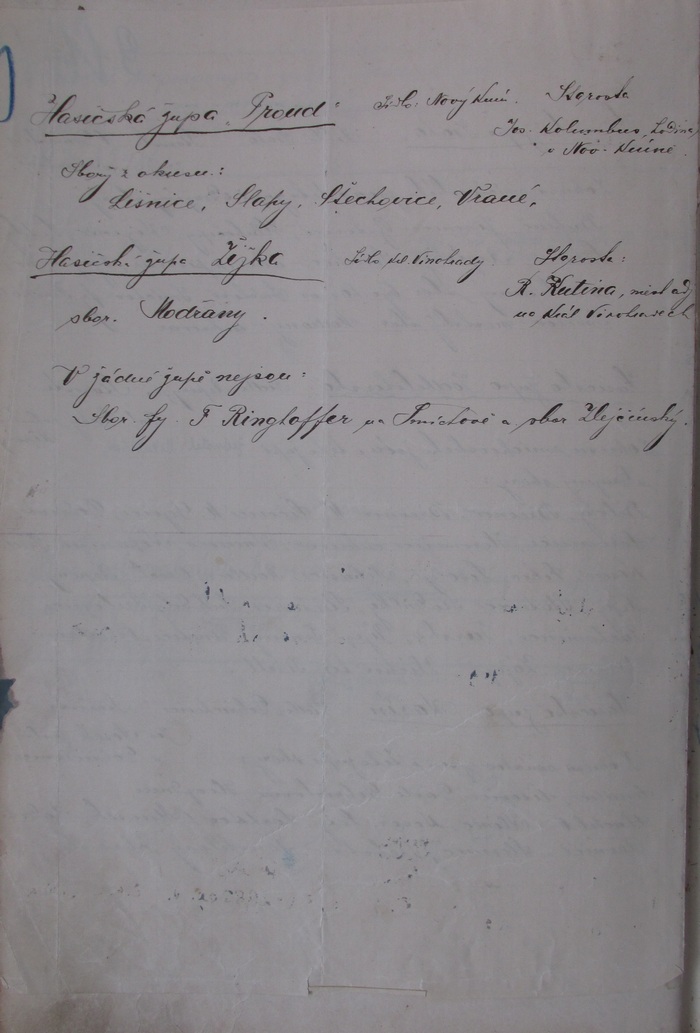 Hasičská župa „Proud“ Sídlo: Nový Knín. Starosta
Jos. Kolumbus,
v Nov. Kníně.
Sbory z okresu:
Líšnice, Slapy, Štěchovice, Vrané,
Hasičská župa Žižka Sídlo Kal. Vinohrady Starosta:
R. Kutina,
na Král Vinohradech
sbor. Modřany.
V žádné župě nejsou:
Sbor. fy. F Ringhoffer na Smíchově a sbor